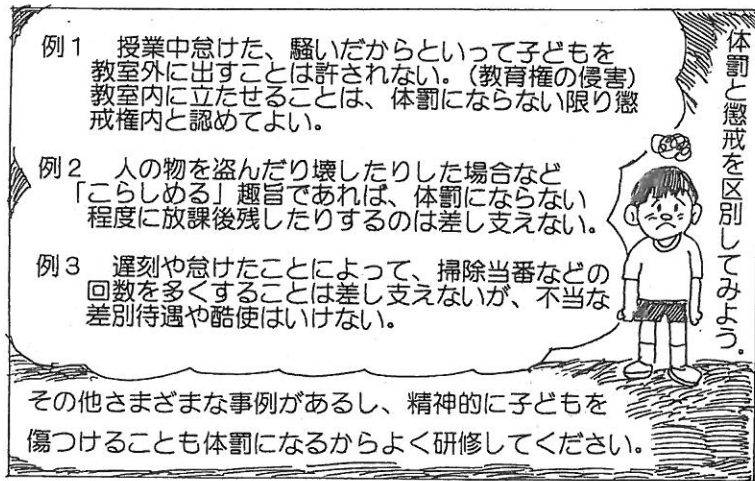 体罰と懲戒を区別してみよう。
例1 授業中怠けた、騒いだからといって子どもを
教室外に出すことは許されない。(教育権の侵害)
教室内に立たせることは、体罰にならない限り懲
戒権内と認めてよい。
例2 人の物を盗んだり壊したりした場合など
「こらしめる」趣旨であれば、体罰にならない
程度に放課後残したりするのは差し支えない。
例3 遅刻や怠けたことによって、掃除当番などの
回数を多くすることは差し支えないが、不当な
差別待遇や酷使はいけない。
その他さまざまな事例があるし、精神的に子どもを
傷つけることも体罰になるからよく研修してください。